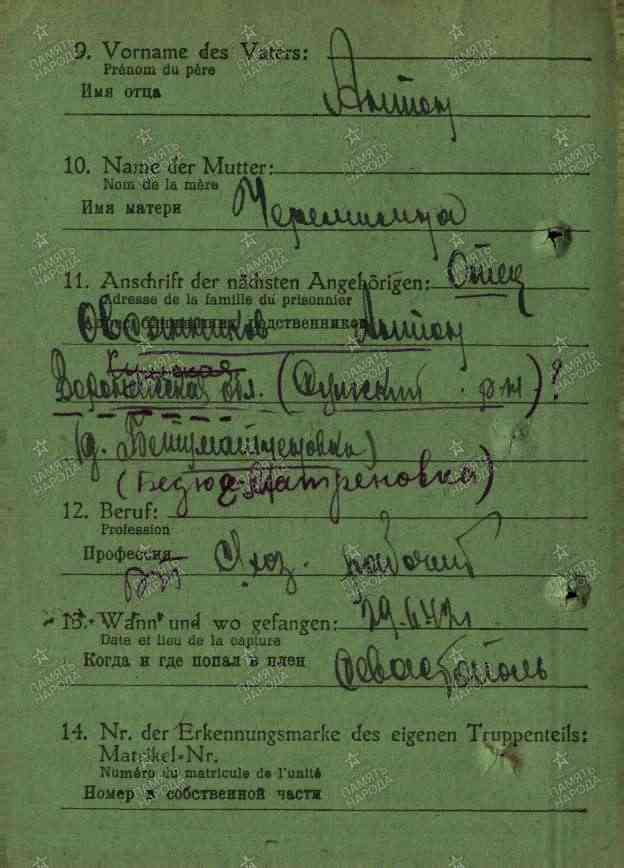 9. Vorname des Vaters:
Prénom du père
Имя отца
Антон
10. Name der Mutter:
Nom de la mère
Имя матери
Черемисина
11. Anschrift der nächsten Angehörigen: Отец
Adresse de la famille du prisonnier
родственников
Овсянников Антон
Воронежская обл. ( р-н)?
(д.
12. Beruf:
Profession
Профессия
С/хоз. рабочий
13. Wann und wo gefangen: 29.6.42
Date et lieu de la capture
Когда и где попал в плен
Севастополь
14. Nr. der Erkennungsmarke des eigenen Truppenteils:
Matrikel-Nr.
Numéro du matricule de l'unité
Номер в собственной части
ПАМЯТЬ НАРОДА